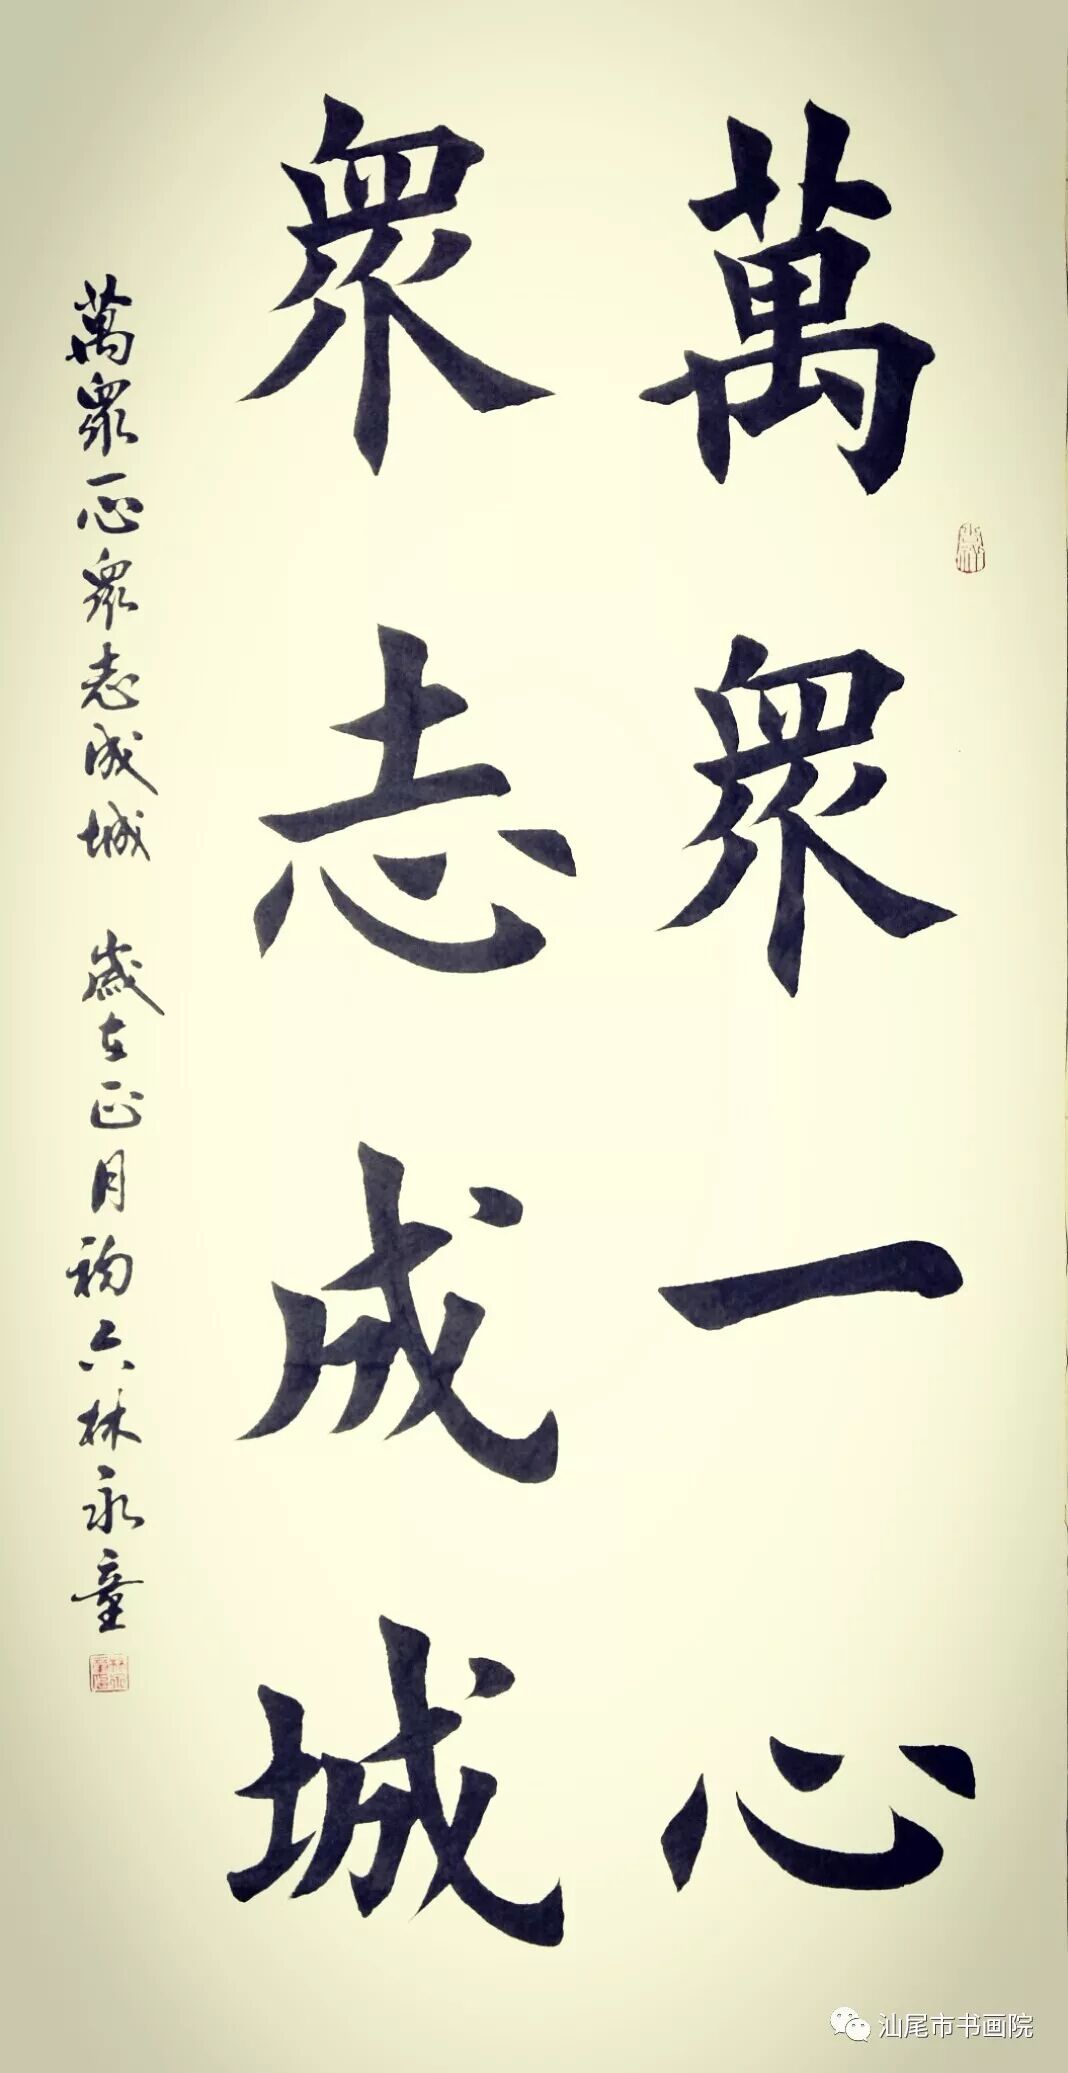 萬眾一心
眾志成城
萬眾一心眾志成城 歲在正月初六林永童
汕尾市书画院